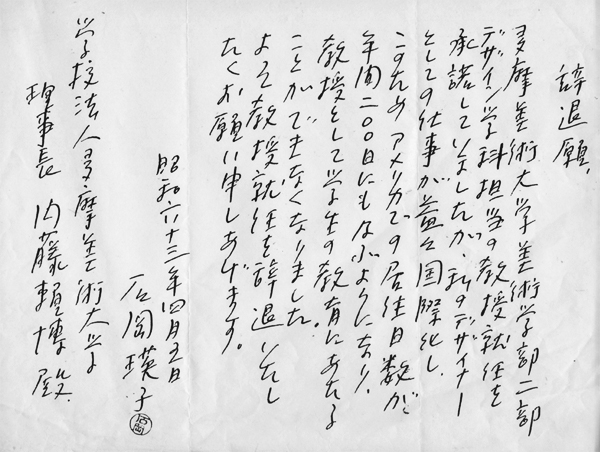 辞退願
多摩美術大学美術学部二部
デザイン学科担当の教授就任を
承諾していましたが、私のデザイナー
としての仕事が益々国際化し
このためアメリカでの居住日数が
年間二〇〇日にも及ぶようになり、
教授として学生の教育にあたる
ことができなくなりました。
よって教授就任を辞退いたし
たくお願い申しあげます。
昭和六十三年四月五日
石岡瑛子
石岡
学校法人多摩美術大学
理事長 内藤頼博殿